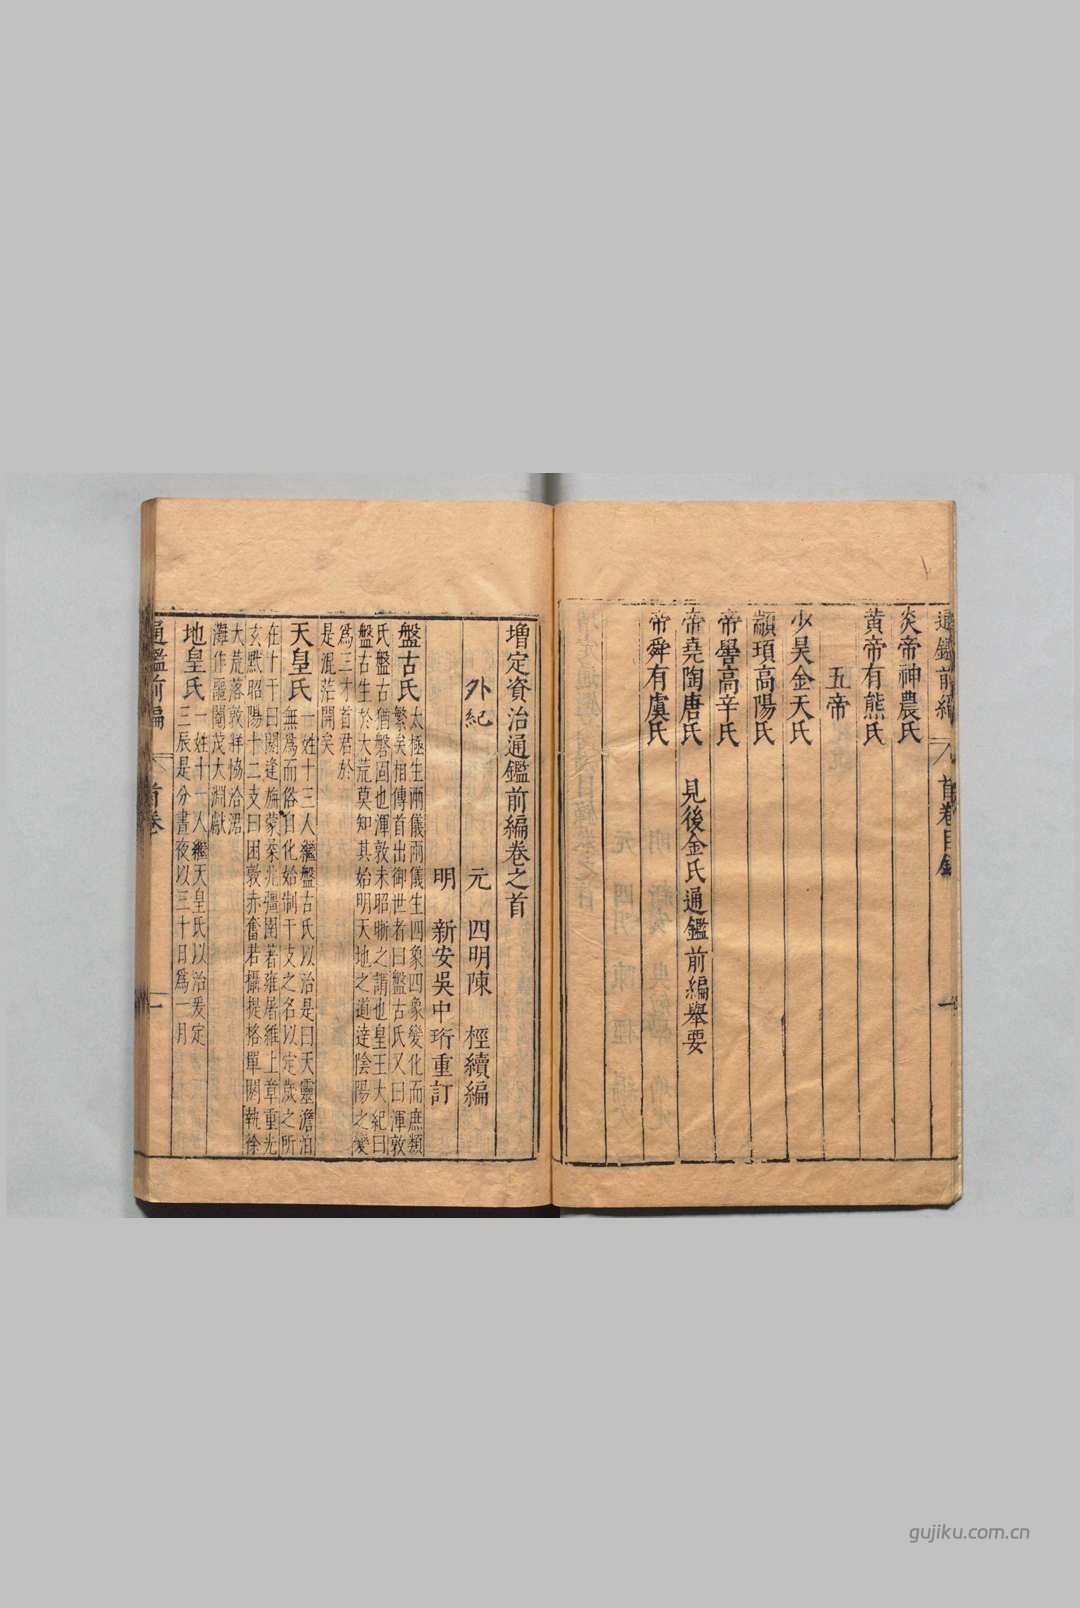 通鑑前編 首卷目錄 一
炎帝神農氏
黃帝有熊氏
五帝
少昊金天氏
顓頊高陽氏
帝嚳高辛氏
帝堯陶唐氏 見後金氏通鑑前編舉要
帝舜有虞氏
增定資治通鑑前編卷之首
外紀 元 四明陳 桱續編
明 新安吳中珩重訂
盤古氏
太極生兩儀兩儀生四象四象變化而庶類
繁矣相傳首出御世者曰盤古氏又曰渾敦
氏盤古猶磐固也渾敦未昭晰之謂也皇王大紀曰
盤古生於大荒莫知其始明天地之道達陰陽之變
為三才首君於
是混茫開矣
天皇氏
一姓十三人繼盤古氏以治是曰天靈澹泊
無為而俗自化始制干支之名以定歲之所
在十干曰閼逢旃蒙柔兆彊圉著雍屠維上章重光
玄黓昭陽十二支曰困敦赤奮若攝提格單閼執徐
大荒落敦牂協洽涒
灘作噩閹茂大淵獻
地皇氏
一姓十一人繼天皇氏以治爰定
三辰是分晝夜以三十日為一月
通鑑前編 首卷 一
gujiku.com.cn